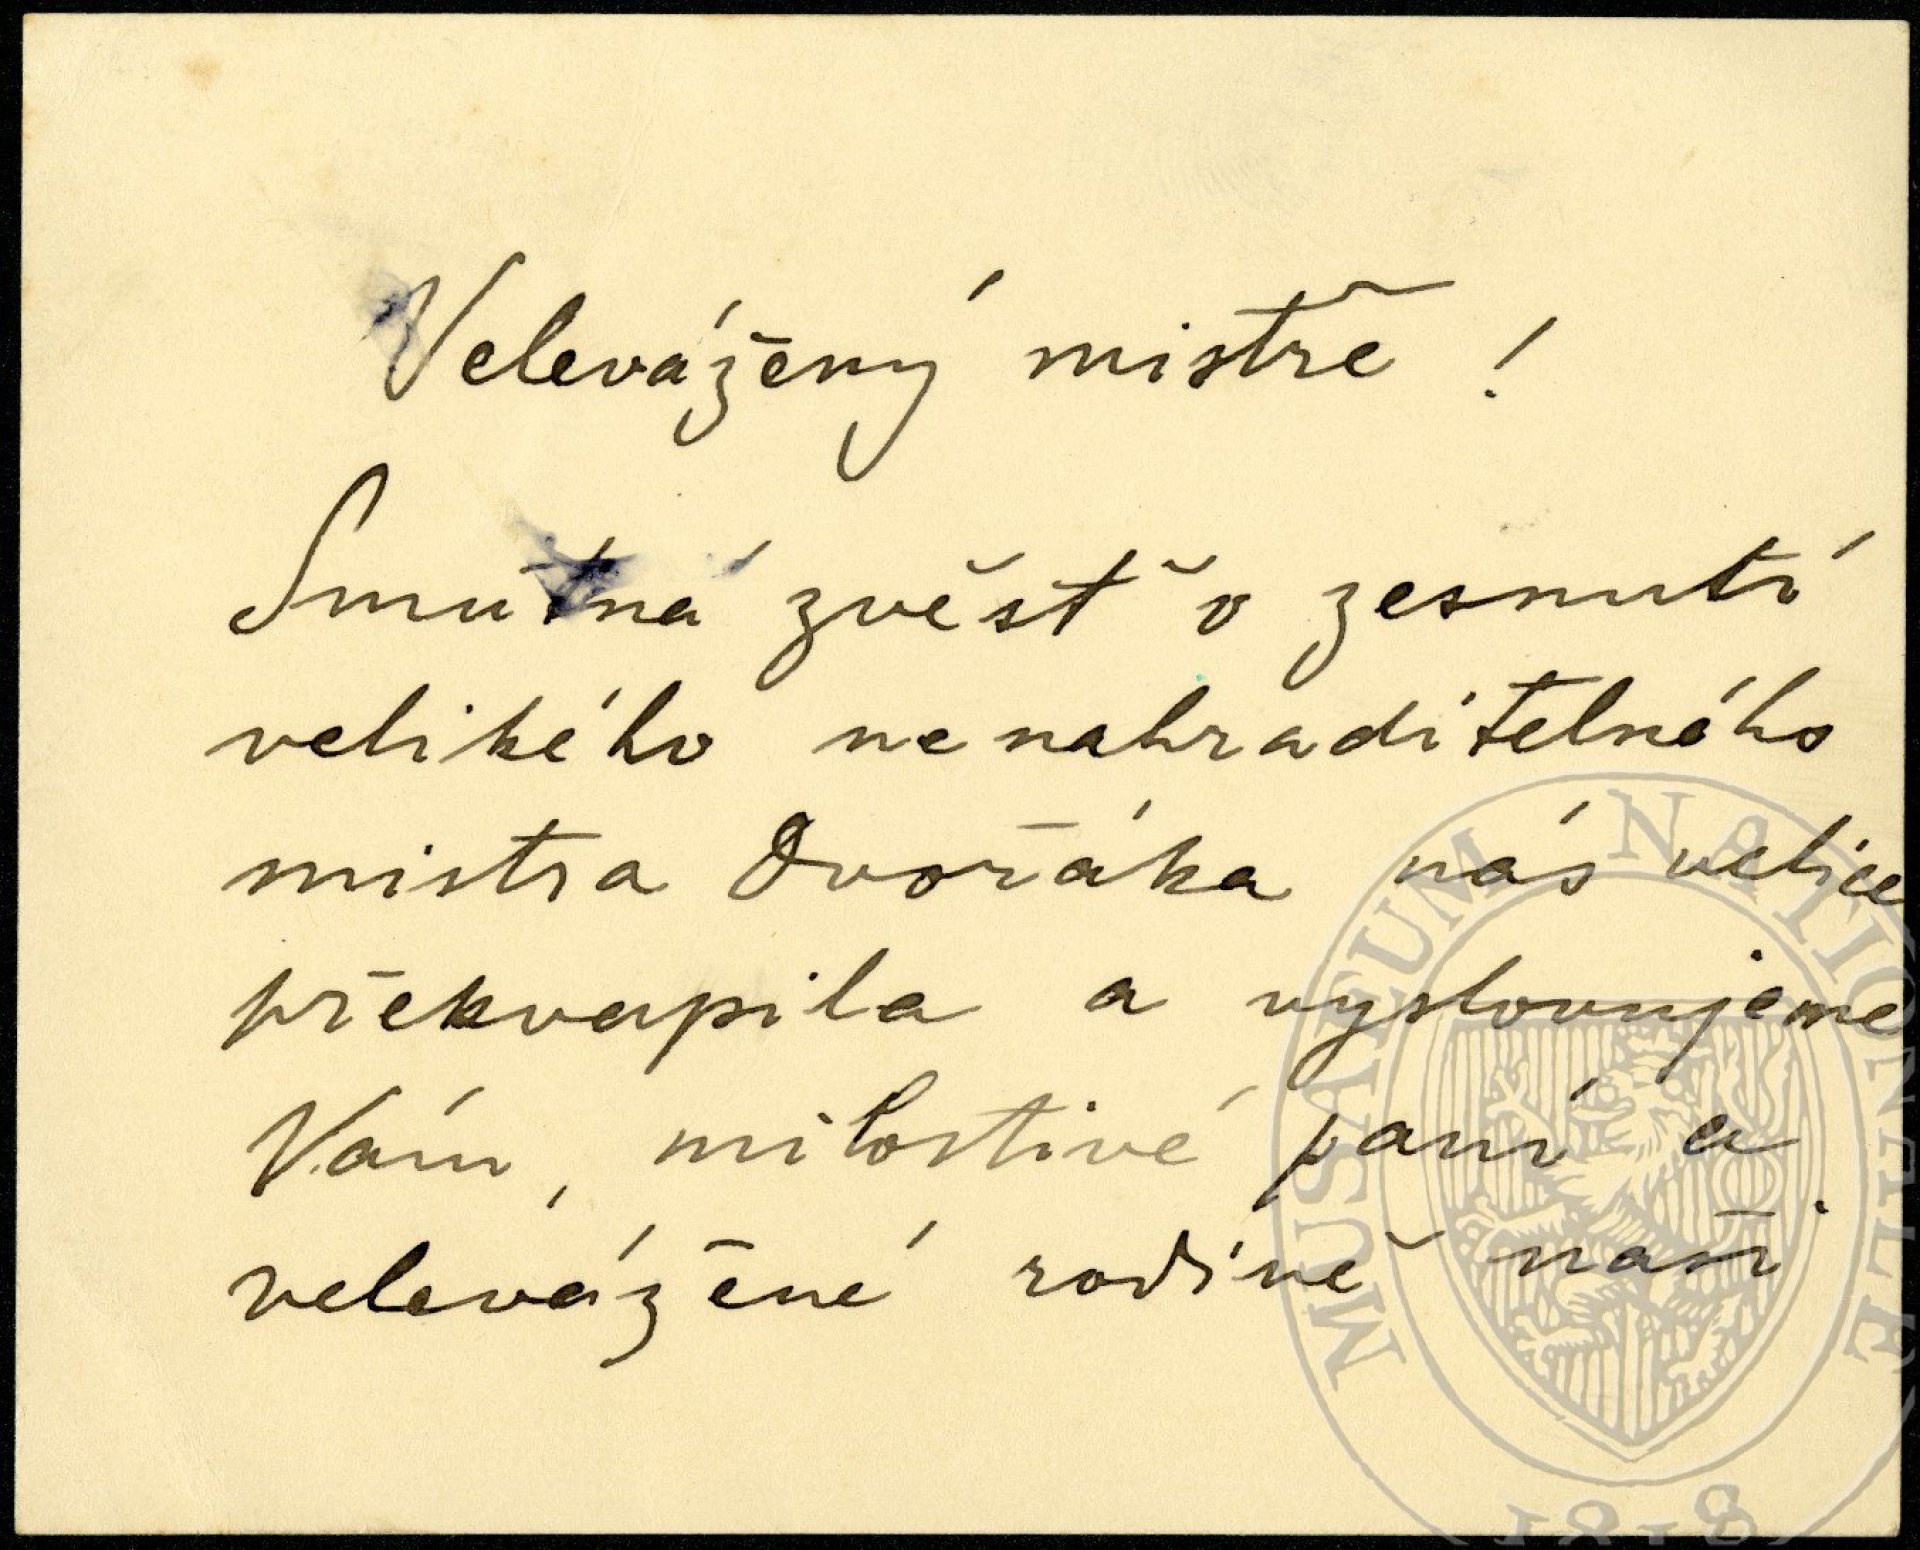 Velevážený mistře !
Smutná zvěsť o zesnutí
velikého nenahraditelného
mistra Dvořáka nás velice
překvapila a vyslovujeme
Vám, milostivé paní a
velevážené rodině naši
MUSAEUM NATIONALE
1818